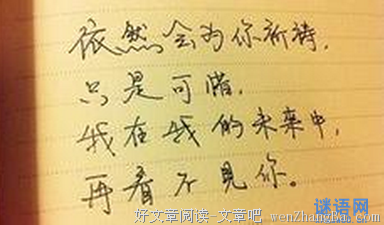 依然会为你祈祷，
只是可惜，
我在我的未来中，
再看不見你。
谜语网
好文章阅读-文章吧 wenZhangBa.com